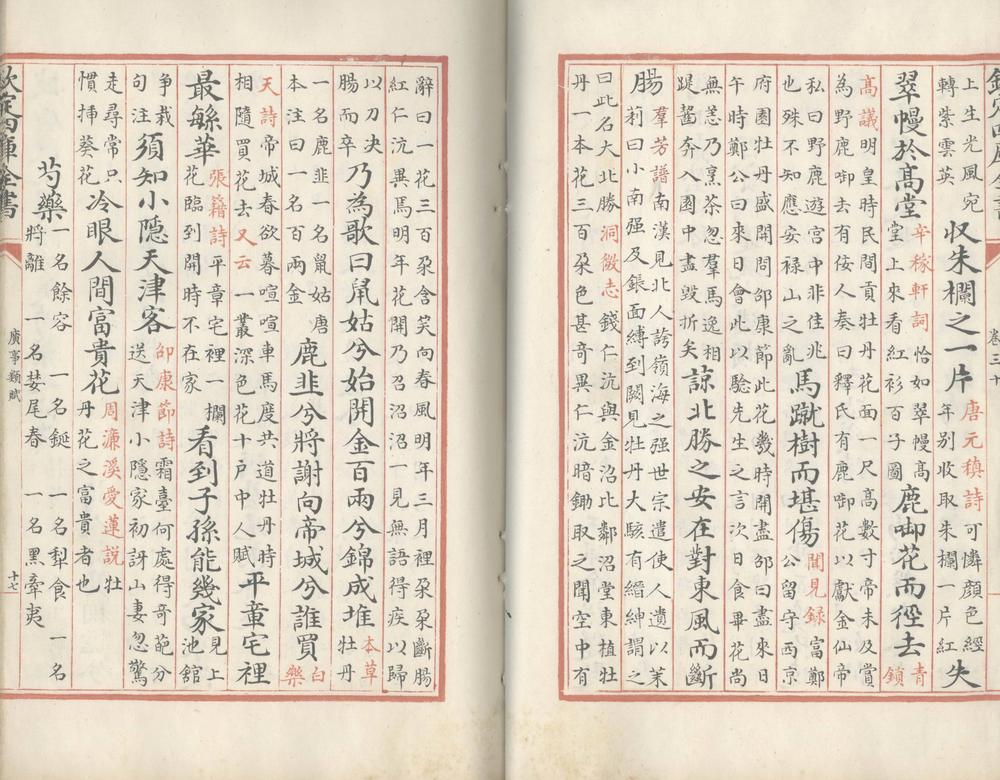 卷三十
上生光風宛轉紫雲英収朱欄之一片唐元稹詩可憐顏色經年别收取朱欄一片紅失
翠幔於高堂辛稼軒詞恰如翠幔高堂上來看紅衫百子圖鹿啣花而徑去青鎖
高議明皇時民間貢牡丹花面一尺高數寸帝未及賞為野鹿啣去有佞人奏曰釋氏有鹿啣花以獻金仙帝
私曰野鹿遊宮中非佳兆也殊不知應安禄山之亂馬蹴樹而堪傷聞見録富鄭公留守西京
府園牡丹盛開問邵康節此花㡬時開盡邵曰盡來日午時鄭公曰來日會此以驗先生之言次日食畢花尚
無恙乃烹茶忽羣馬逸相踶齧奔入園中盡毀折矣諒北勝之安在對東風而斷
腸羣芳譜南漢見北人誇嶺海之强世宗遣使人遺以茉莉曰小南强及鋹面縛到闕見牡丹大駭有縉紳謂之
曰此名大北勝洞微志錢仁沆與金沼比鄰沼堂東植牡丹一本花三百朶色甚奇異仁沆暗鋤取之聞空中有
辭曰一花三百朶含笑向春風明年三月裡朶朶斷腸紅仁沆異焉明年花開乃召沼沼一見無語得疾以歸
以刀决腸而卒乃為歌曰鼠姑兮始開金百兩兮錦成堆本草牡丹
一名鹿韭一名鼠姑唐本注曰一名百兩金鹿韭兮將謝向帝城兮誰買白樂
天詩帝城春欲暮喧喧車馬度共道牡丹時相隨買花去又云一叢深色花十户中人賦平章宅裡
最繁華張籍詩平章宅裡一欄花臨到開時不在家看到子孫能幾家見上池館
争栽句注須知小隱天津客邵康節詩霜臺何處得奇葩分送天津小隱家初訝山妻忽驚
走尋常只慣挿葵花冷眼人間富貴花周濂溪愛蓮説牡丹花之富貴者也
芍藥一名餘容 一名鋋 一名犁食 一名將離 一名婪尾春 一名黑牽夷
欽定四庫全書 廣事類賦 十七